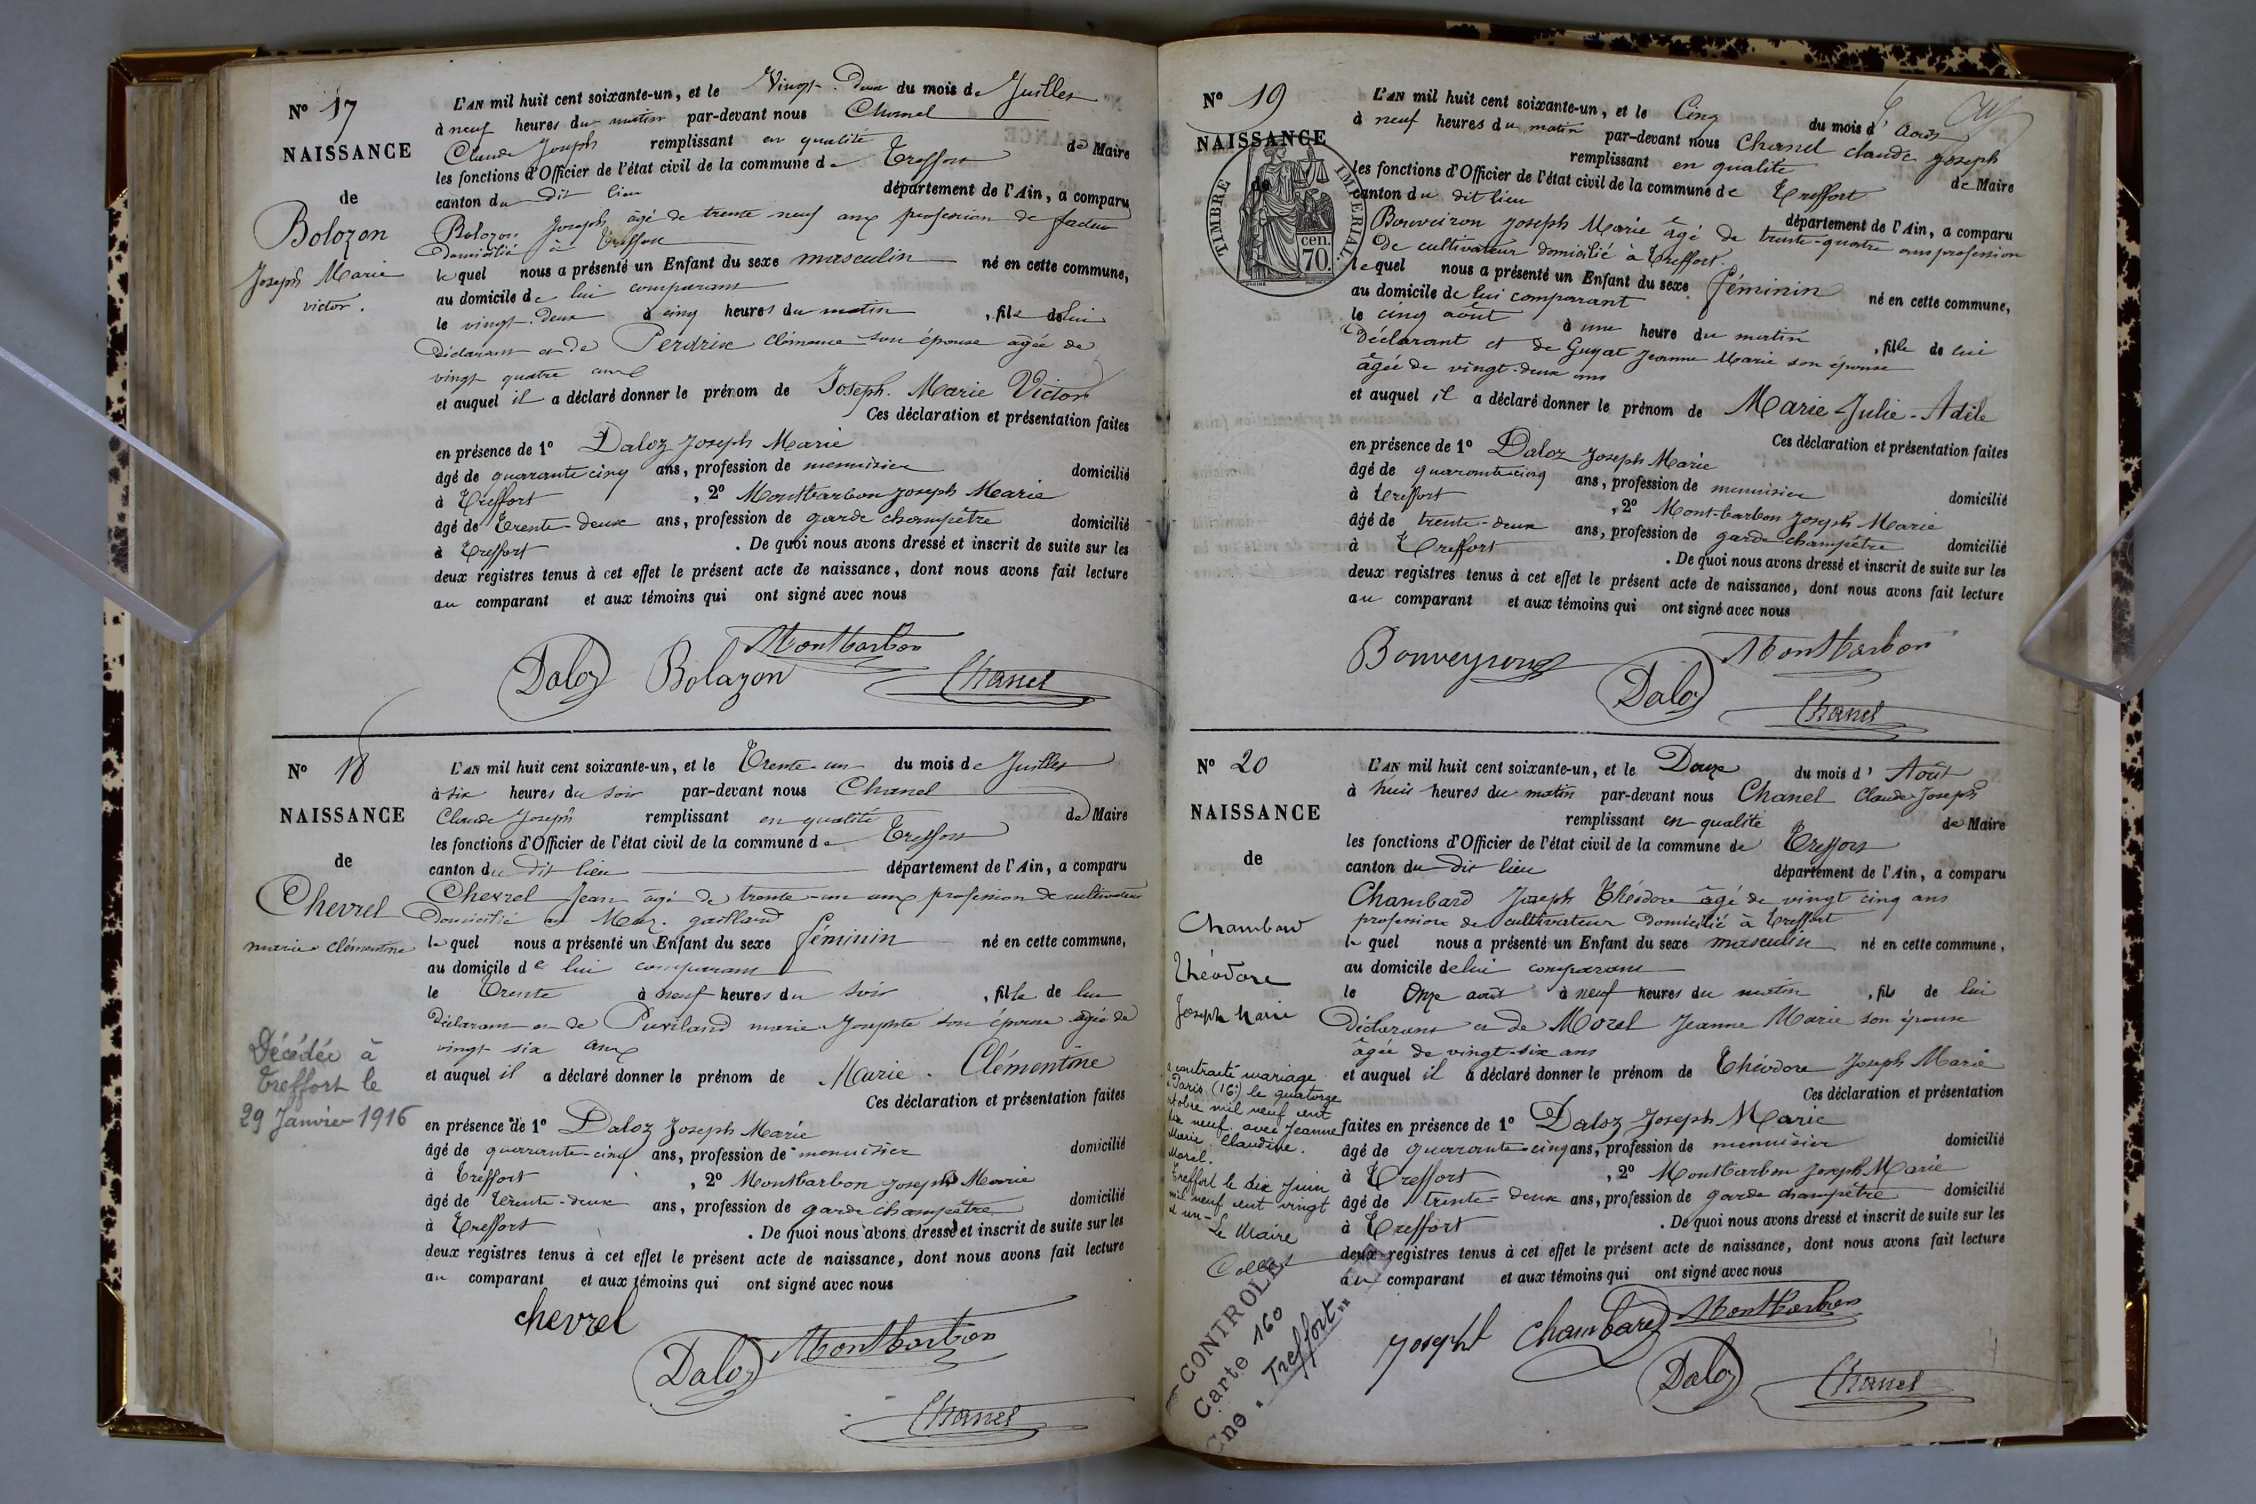 N° 17
NAISSANCE
de
Bolozon
Joseph Marie
victor.
L'AN mil huit cent soixante-un, et le Vingt-Deux du mois de Juillet
à neuf heures du matin par-devant nous Chanel
Claude Joseph remplissant en qualité de Maire
les fonctions d'Officier de l'état civil de la commune de Treffort
canton du dit lieu département de l'Ain, a comparu
Bolozon Joseph âgé de trente neuf ans profession de facteur
Domicilié à Treffort
lequel nous a présenté un Enfant du sexe masculin né en cette commune,
au domicile de lui comparant
le vingt-deux à cinq heures du matin, fils de lui
Déclarant et de Perdrix Clémence son épouse agée de
vingt quatre ans
et auquel il a déclaré donner le prénom de Joseph. Marie Victor
Ces déclaration et présentation faites
en présence de 1° Daloz Joseph Marie
âgé de quarante cinq ans, profession de menuisier domicilié
à Treffort, 2° Montbarbon Joseph Marie
âgé de Trente-deux ans, profession de garde champêtre domicilié
à Treffort. De quoi nous avons dressé et inscrit de suite sur les
deux registres tenus à cet effet le présent acte de naissance, dont nous avons fait lecture
au comparant et aux témoins qui ont signé avec nous
Daloz Bolozon Montbarbon Chanel
N° 18
NAISSANCE
de
Chevrel
marie Clémentine
Décédée à
Treffort le
29 Janvier 1916
L'AN mil huit cent soixante-un, et le Trente un du mois de Juillet
à six heures du soir par-devant nous Chanel
Claude Joseph remplissant en qualité de Maire
les fonctions d'Officier de l'état civil de la commune de Treffort
canton du dit lieu département de l'Ain, a comparu
Chevrel Jean âgé de trente-un ans profession de cultivateur
Domicilié au Mas. gaillard
lequel nous a présenté un Enfant du sexe féminin né en cette commune,
au domicile de lui comparant
le Trente à neuf heures du soir, fille de lui
Déclarant et de marie Josephte son épouse agée de
vingt six ans
et auquel il a déclaré donner le prénom de Marie. Clémentine
Ces déclaration et présentation faites
en présence de 1° Daloz Joseph Marie
âgé de quarante-cinq ans, profession de menuisier domicilié
à Treffort, 2° Montbarbon Joseph Marie
âgé de Trente-deux ans, profession de garde champêtre domicilié
à Treffort. De quoi nous avons dressé et inscrit de suite sur les
deux registres tenus à cet effet le présent acte de naissance, dont nous avons fait lecture
au comparant et aux témoins qui ont signé avec nous
chevrel Daloz Montbarbon
Chanel
N° 19
NAISSANCE
de
TIMBRE IMPERIAL.
70 cen.
L'AN mil huit cent soixante-un, et le Cinq du mois d'Août
à neuf heures du matin par-devant nous Chanel Claude Joseph
remplissant en qualité de Maire
les fonctions d'Officier de l'état civil de la commune de Treffort
canton du dit lieu département de l'Ain, a comparu
Bouveiron Joseph Marie âgé de trente-quatre ans profession
de cultivateur domicilié à Treffort.
lequel nous a présenté un Enfant du sexe féminin né en cette commune,
au domicile de lui comparant
le cinq août à une heure du matin, fille de lui
Déclarant et de Guyat Jeanne Marie son épouse
âgée de vingt-deux ans
et auquel il a déclaré donner le prénom de Marie Julie-Adèle
Ces déclaration et présentation faites
en présence de 1° Daloz Joseph Marie
âgé de quarante-cinq ans, profession de menuisier domicilié
à Treffort, 2° Mont-barbon Joseph Marie
âgé de trente-deux ans, profession de garde-champêtre domicilié
à Treffort. De quoi nous avons dressé et inscrit de suite sur les
deux registres tenus à cet effet le présent acte de naissance, dont nous avons fait lecture
au comparant et aux témoins qui ont signé avec nous
Bouveyron Daloz Montbarbon
Chanel
N° 20
NAISSANCE
de
Chambard
Théodore
Joseph Marie
a contracté mariage
à Paris (16e) le quatorze
octobre mil neuf cent
dix neuf avec Jeanne
Marie Claudine.
Morel.
Treffort le dix Juin
mil neuf cent vingt
et un-
Le Maire
CONTROLE
Carte 160
Cne "Treffort"
L'AN mil huit cent soixante-un, et le Douze du mois d'Août
à huit heures du matin par-devant nous Chanel Claude Joseph
remplissant en qualité de Maire
les fonctions d'Officier de l'état civil de la commune de Treffort
canton du dit lieu département de l'Ain, a comparu
Chambard Joseph Théodore âgé de vingt cinq ans
profession de cultivateur domicilié à Treffort
lequel nous a présenté un Enfant du sexe masculin né en cette commune,
au domicile de lui comparant
le Onze août à neuf heures du matin, fils de lui
Déclarant et de Morel Jeanne Marie son épouse
âgée de vingt-six ans
et auquel il a déclaré donner le prénom de Théodore Joseph Marie
Ces déclaration et présentation
faites en présence de 1° Daloz Joseph Marie
âgé de quarante-cinq ans, profession de menuisier domicilié
à Treffort, 2° Montbarbon Joseph Marie
âgé de trente-deux ans, profession de garde champêtre domicilié
à Treffort. De quoi nous avons dressé et inscrit de suite sur les
deux registres tenus à cet effet le présent acte de naissance, dont nous avons fait lecture
au comparant et aux témoins qui ont signé avec nous
Joseph Chambard Montbarbon
Daloz Chanel